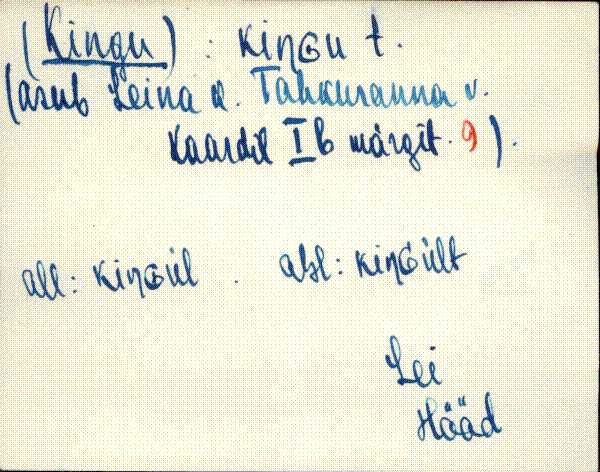 (Kingu) : kiŋGu t.
(asub Leina k. Tahkuranna v.
kaardil I b märgit. 9).
all: kiŋGùl . abl: kiŋGùlt
Lei
Hääd